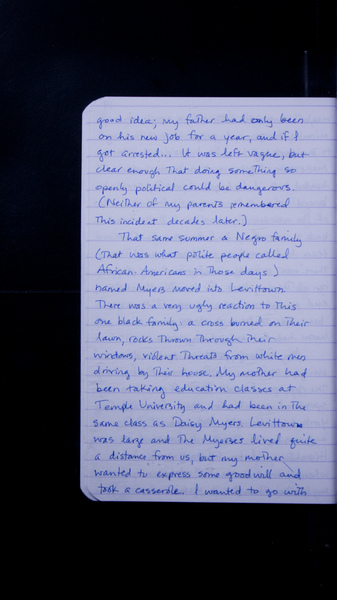 good idea; my father had only been
on his new job for a year, and if I
got arrested... It was left vague, but
clear enough that doing something so
openly political could be dangerous.
(Neither of my parents remembered
this incident decades later.)
That same summer a Negro family
(that was what polite people called
African-Americans in those days)
named Myers moved into Levittown.
There was a very ugly reaction to this
one black family: a cross burned on their
lawn, rocks thrown through their
windows, violent threats from white men
driving by their house. My mother had
been taking education classes at
Temple University and had been in the
same class as Daisy Myers. Levittown
was large and the Myerses lived quite
a distance from us, but my mother
wanted to express some good will and
took a casserole. I wanted to go with